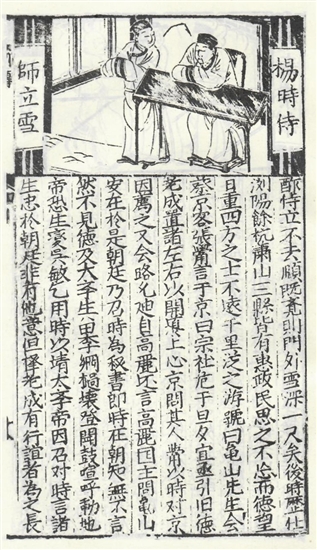 楊時侍
師立雪
酢侍立不去頤既覺則門外雪深一尺矣後時歷仕
瀏陽餘杭蕭山三縣皆有惠政民思之不忘而德望
日重四方之士不遠千里從之游號曰龜山先生会
蔡京客張觷言于京曰宗社危于旦夕宜亟引旧德
老成置諸左右以開導上心京問其人觷以時对京
因薦之又会路允迪自高麗还言高麗囯王問龜山
安在於是朝廷乃召時為秘書郎時在朝知無不言
然不見德及大斈生田李綱撾壊登聞鼓喧呼動地
帝恐生变吳敏乞用時以靖太斈帝因乃对時言諸
生忠於朝廷非有他意但擇老成有行誼者為之長